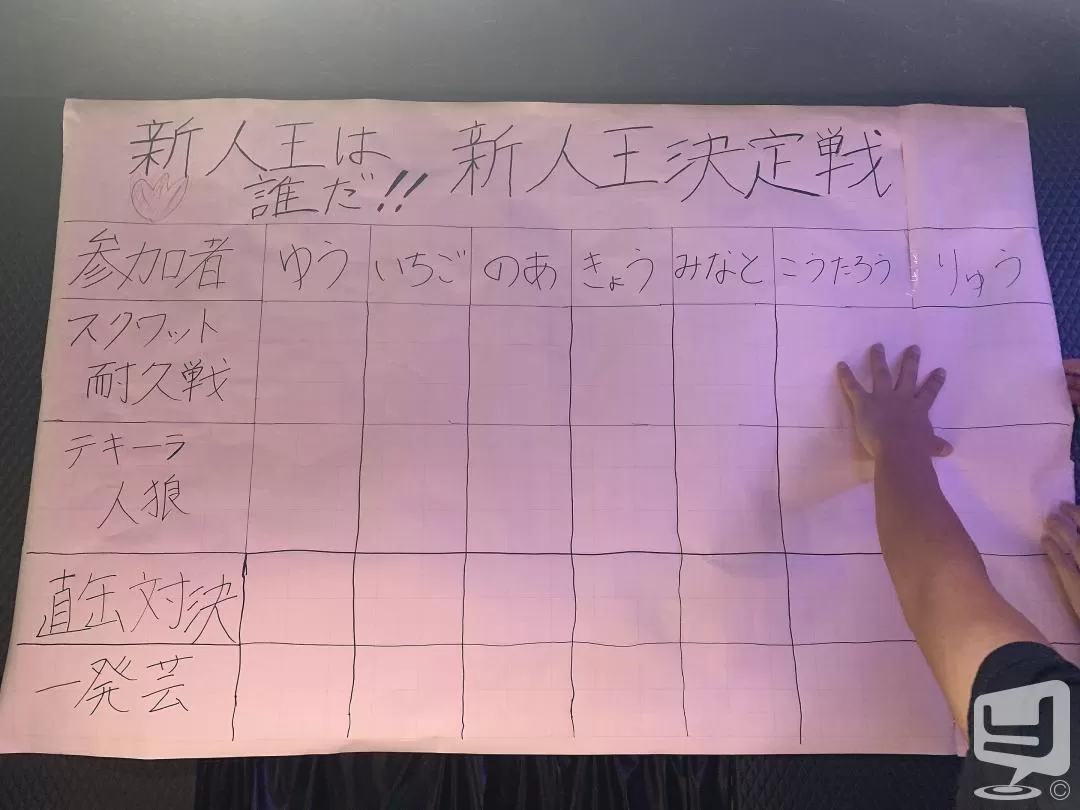 新人王は
誰だ!!
新人王決定戦
参加者 ゆう いちご のあ きょう みなと こうたろう りゅう
スクワット
耐久戦
テキーラ
人狼
直缶対決
一発芸
©